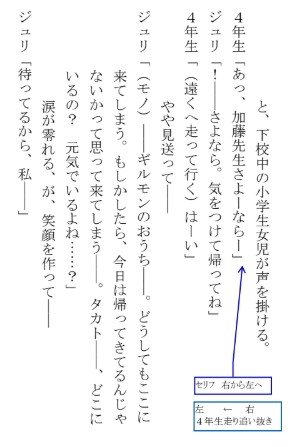 と、下校中の小学生女児が声を掛ける。
４年生「あっ、加藤先生さよーならー」
ジュリ「！――さよなら。気をつけて帰ってね」
４年生「（遠くへ走って行く）はーい」
やや見送って――
ジュリ「（モノ）――ギルモンのおうち――。どうしてもここに
来てしまう。もしかしたら、今日は帰ってきてるんじゃ
ないかって思って来てしまう――。タカト――、どこに
いるの？　元気でいるよね……？」
涙が零れる、が、笑顔を作って――
ジュリ「待ってるから、私――」
セリフ　右から左へ
左　←　右
４年生走り追い抜き